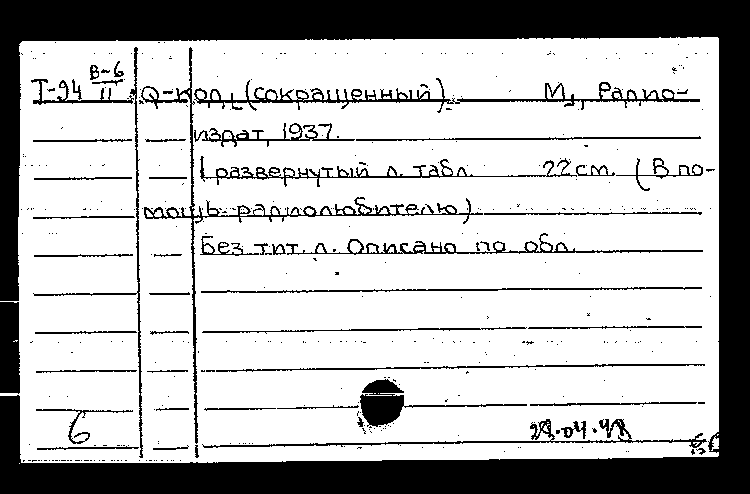 Т-94 В-6/II Q-код, (сокращенный). М., Радио-
издат, 1937.
1 развернутый л. табл. 22 см. (В по-
мощь радиолюбителю)
Без тит. л. Описано по обл.
6